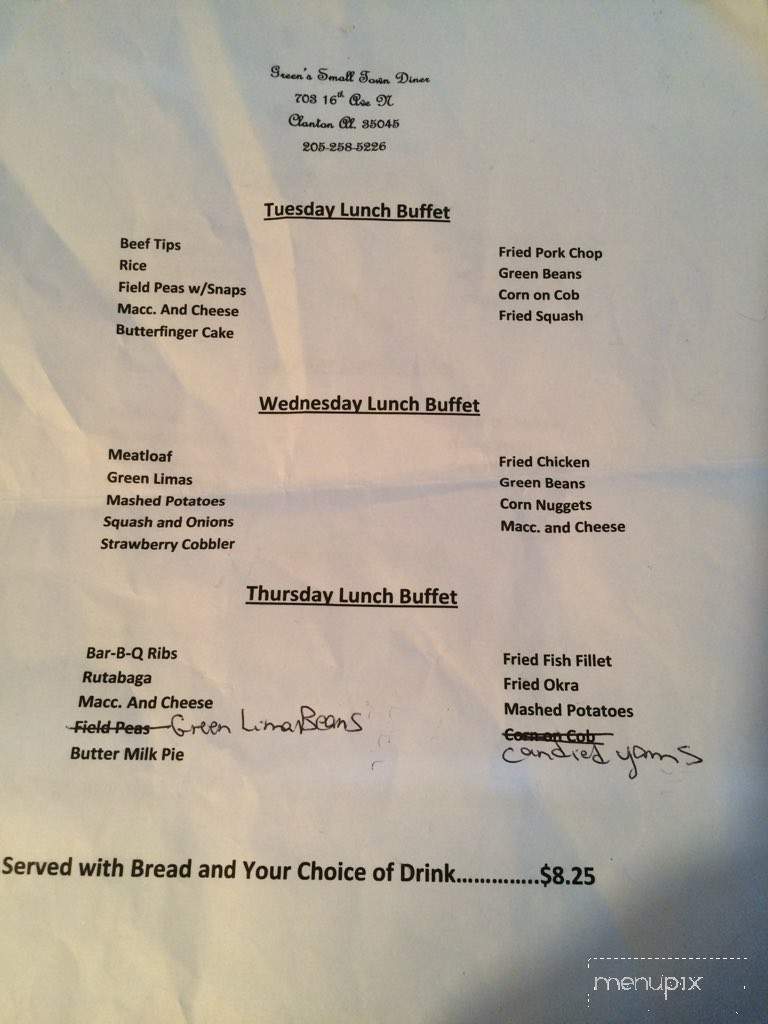 Green's Small Town Diner
703 16th Ave N
Clanton Al. 35045
205-258-5226
Tuesday Lunch Buffet
Beef Tips
Rice
Field Peas w/Snaps
Macc. And Cheese
Butterfinger Cake
Fried Pork Chop
Green Beans
Corn on Cob
Fried Squash
Wednesday Lunch Buffet
Meatloaf
Green Limas
Mashed Potatoes
Squash and Onions
Strawberry Cobbler
Fried Chicken
Green Beans
Corn Nuggets
Macc. and Cheese
Thursday Lunch Buffet
Bar-B-Q Ribs
Rutabaga
Macc. And Cheese
Field Peas Green Lima Beans
Butter Milk Pie
Fried Fish Fillet
Fried Okra
Mashed Potatoes
Corn on Cob
candied yams
Served with Bread and Your Choice of Drink...............$8.25
menupix